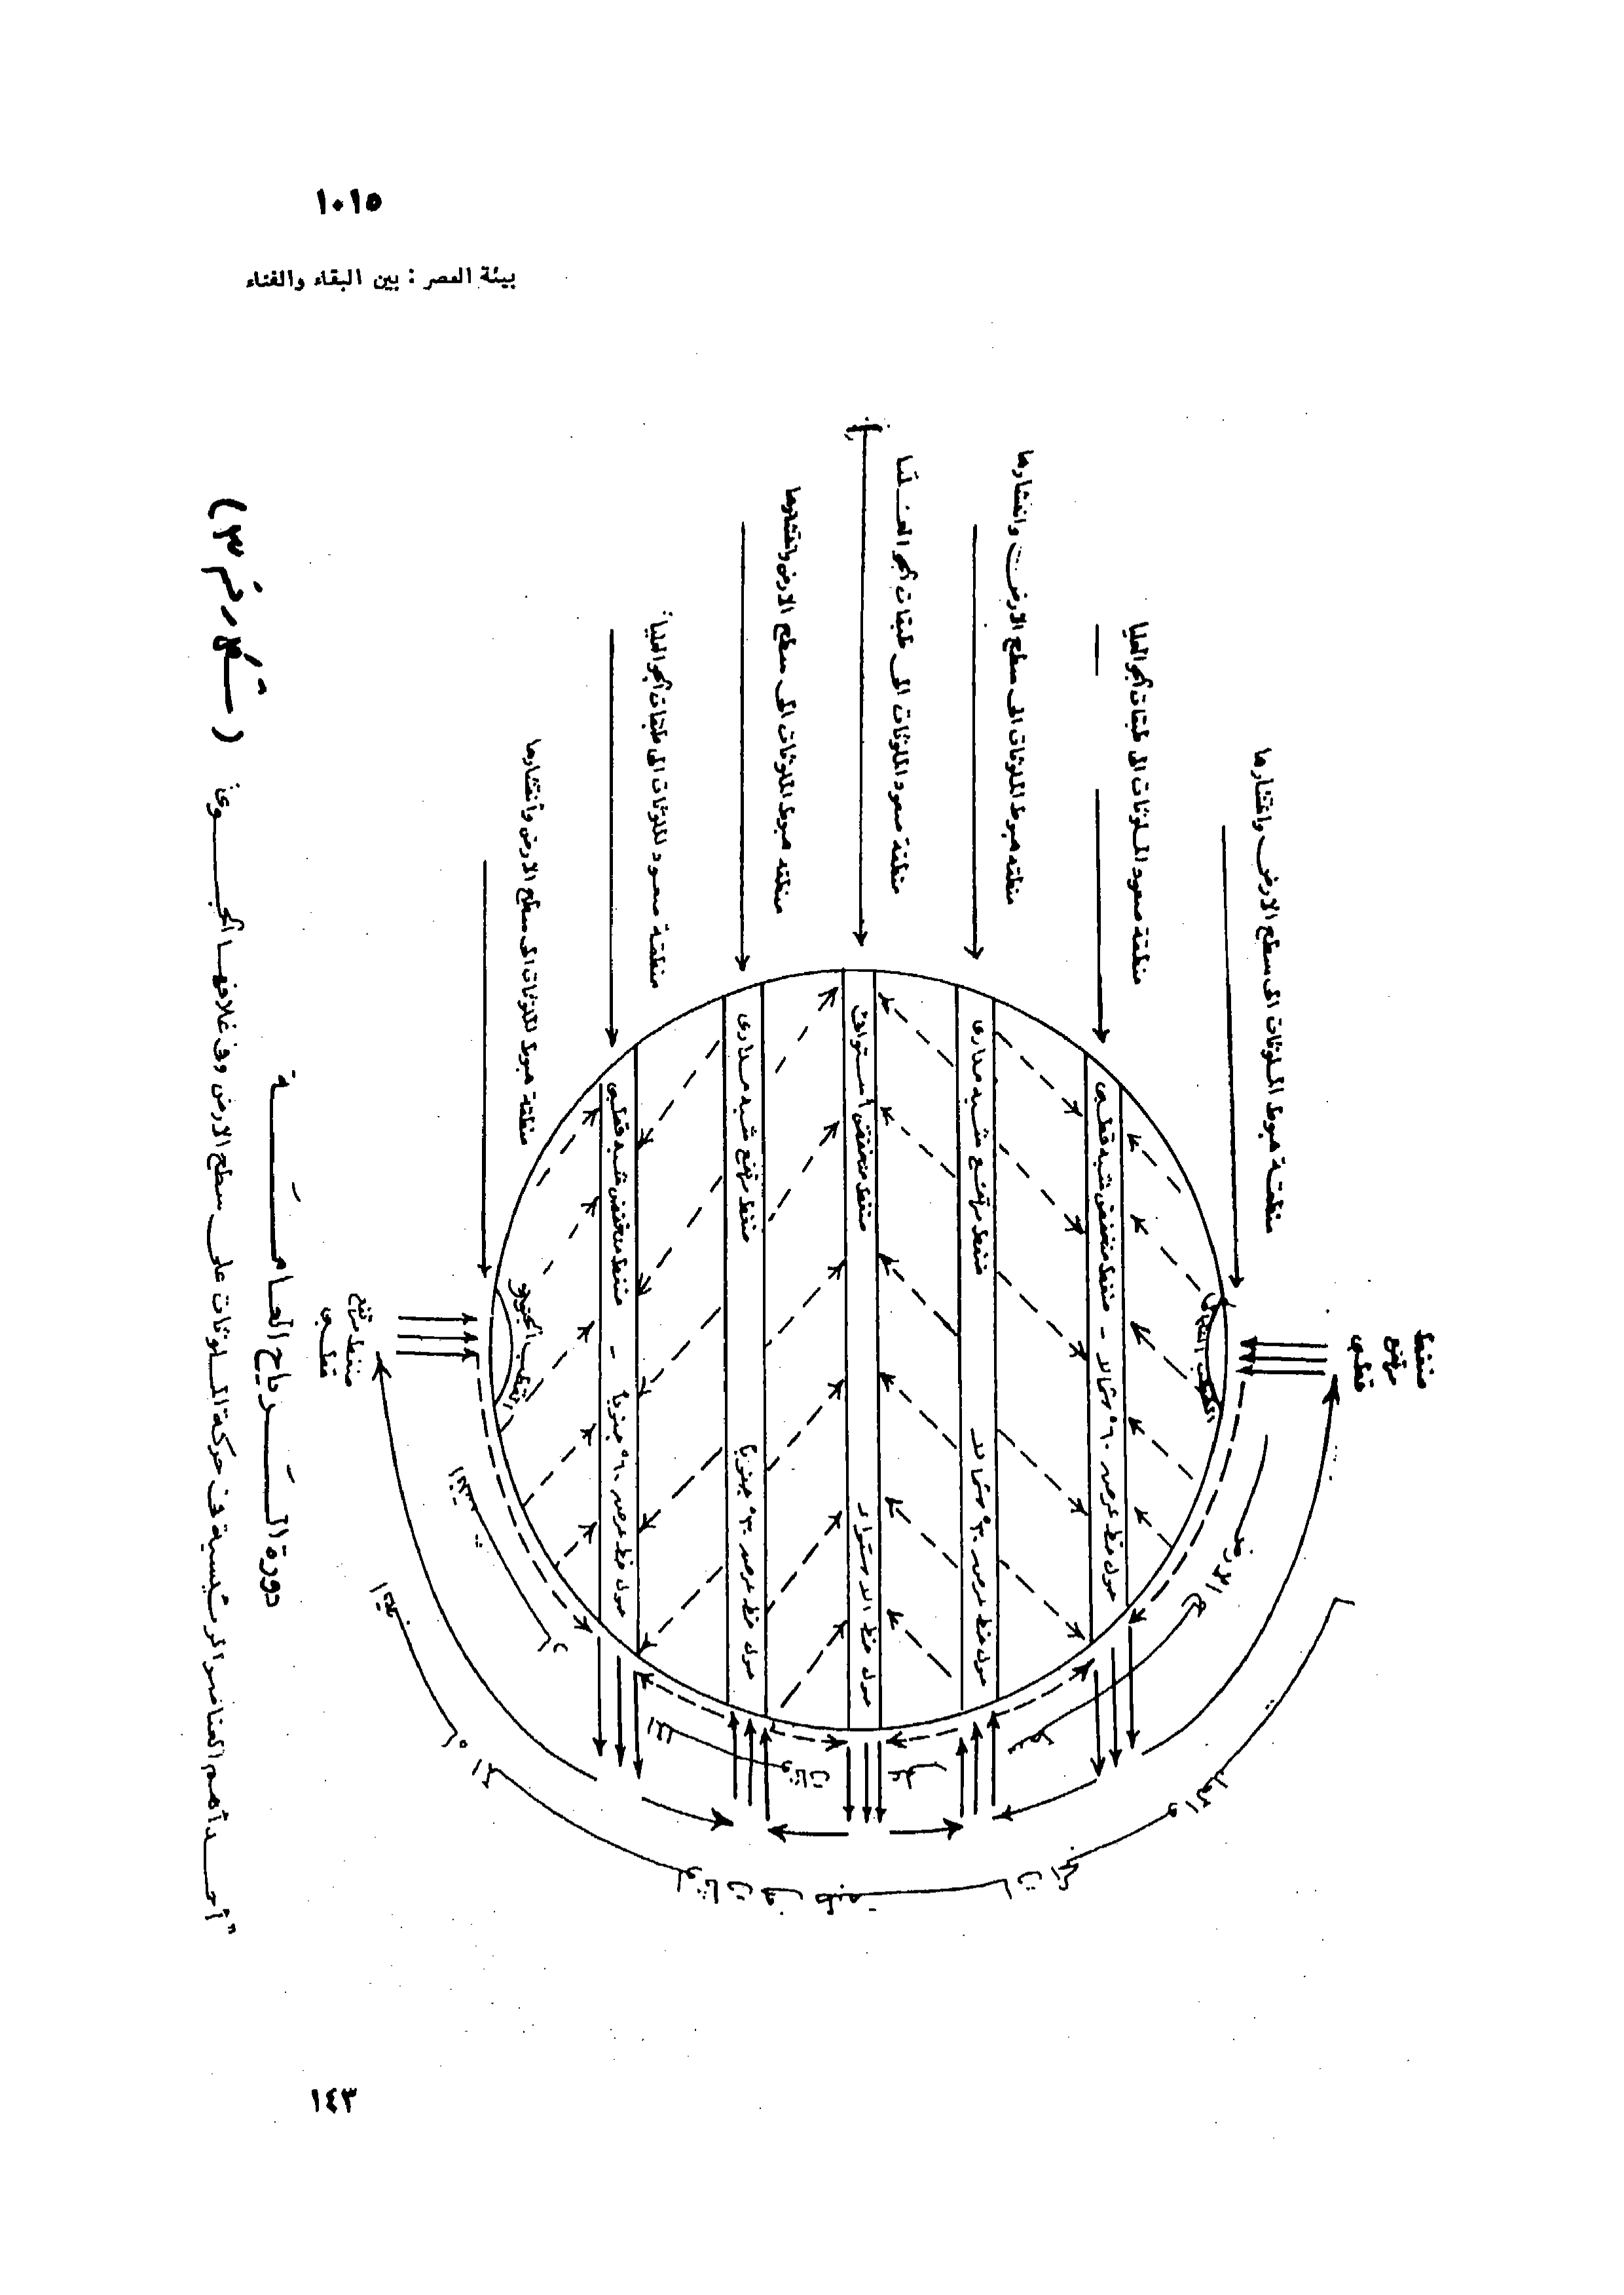 ١٠١٥
بيئة العصر : بين البقاء والفناء
منطقة هبوط الملوثات الى سطح الارض وانتشارها
منطقة صعود الملوثات الى طبقات الجو العليا
منطقة هبوط الملوثات الى سطح الارض وانتشارها
منطقة صعود الملوثات الى طبقات الجو العليا
منطقة هبوط الملوثات الى سطح الارض وانتشارها
منطقة صعود الملوثات الى طبقات الجو العليا
منطقة هبوط الملوثات الى سطح الارض وانتشارها
ضغط
مرتفع
قطبى
القطب الشمالى
ضغط منخفض شبه قطبى - حول خط عرض ٦٠° شمالا
ضغط مرتفع شبه مدارى حول خط عرض ٣٠° شمالا
ضغط منخفض استوائى حول خط الاستواء
ضغط مرتفع شبه مدارى حول خط عرض ٣٠° جنوبا
ضغط منخفض شبه قطبى - حول خط عرض ٦٠° جنوبا
القطب الجنوبى
ضغط مرتفع
قطبى
دورة الرياح العامة
"أحد أهم العناصر الرئيسية فى حركة الملوثات على سطح الارض وفى غلافها الجوى"
(شكل رقم ٣)
١٤٣